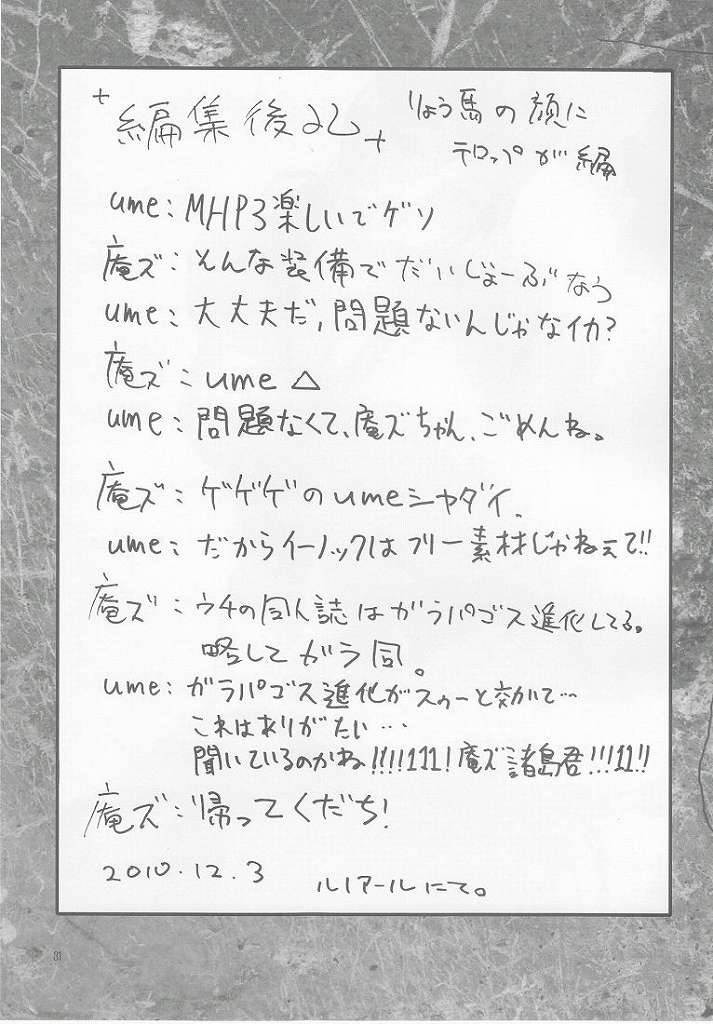 +編集後記+
りょう馬の顔に
テロップが編
ume: MHP3楽しいでゲソ
庵ズ:そんな装備でだいじょーぶなう
ume:大丈夫だ,問題ないんじゃなイカ?
庵ズ:ume△
ume:問題なくて、庵ズちゃん、ごめんね。
庵ズ:ゲゲゲのumeシャダイ.
ume:だからイーノックはフリー素材じゃねぇて!!
庵ズ:ウチの同人誌はガラパゴス進化してる。
略してガラ同。
ume:ガラパゴス進化がスゥーと効いて…
これはありがたい…
聞いているのかね!!!!111!庵ズ諸島君!!!11!!
庵ズ:帰ってくだち!
2010.12.3
ルノアールにて。
31